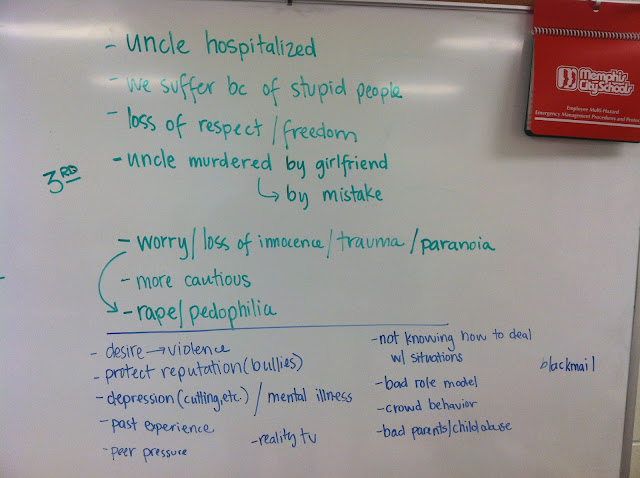 - uncle hospitalized
- we suffer bc of stupid people
- loss of respect/freedom
- uncle murdered by girlfriend
↳ by mistake
3RD
- worry/loss of innocence/trauma/paranoia
- more cautious
- rape/pedophilia
- desire → violence
- protect reputation (bullies)
- depression (cutting, etc.) / mental illness
- past experience
- peer pressure
- reality tv
- not knowing how to deal
w/ situations
- bad role model
- crowd behavior
- bad parents/child abuse
blackmail
Memphis
City Schools
Employee Multi-Hazard
Emergency Management Procedures and